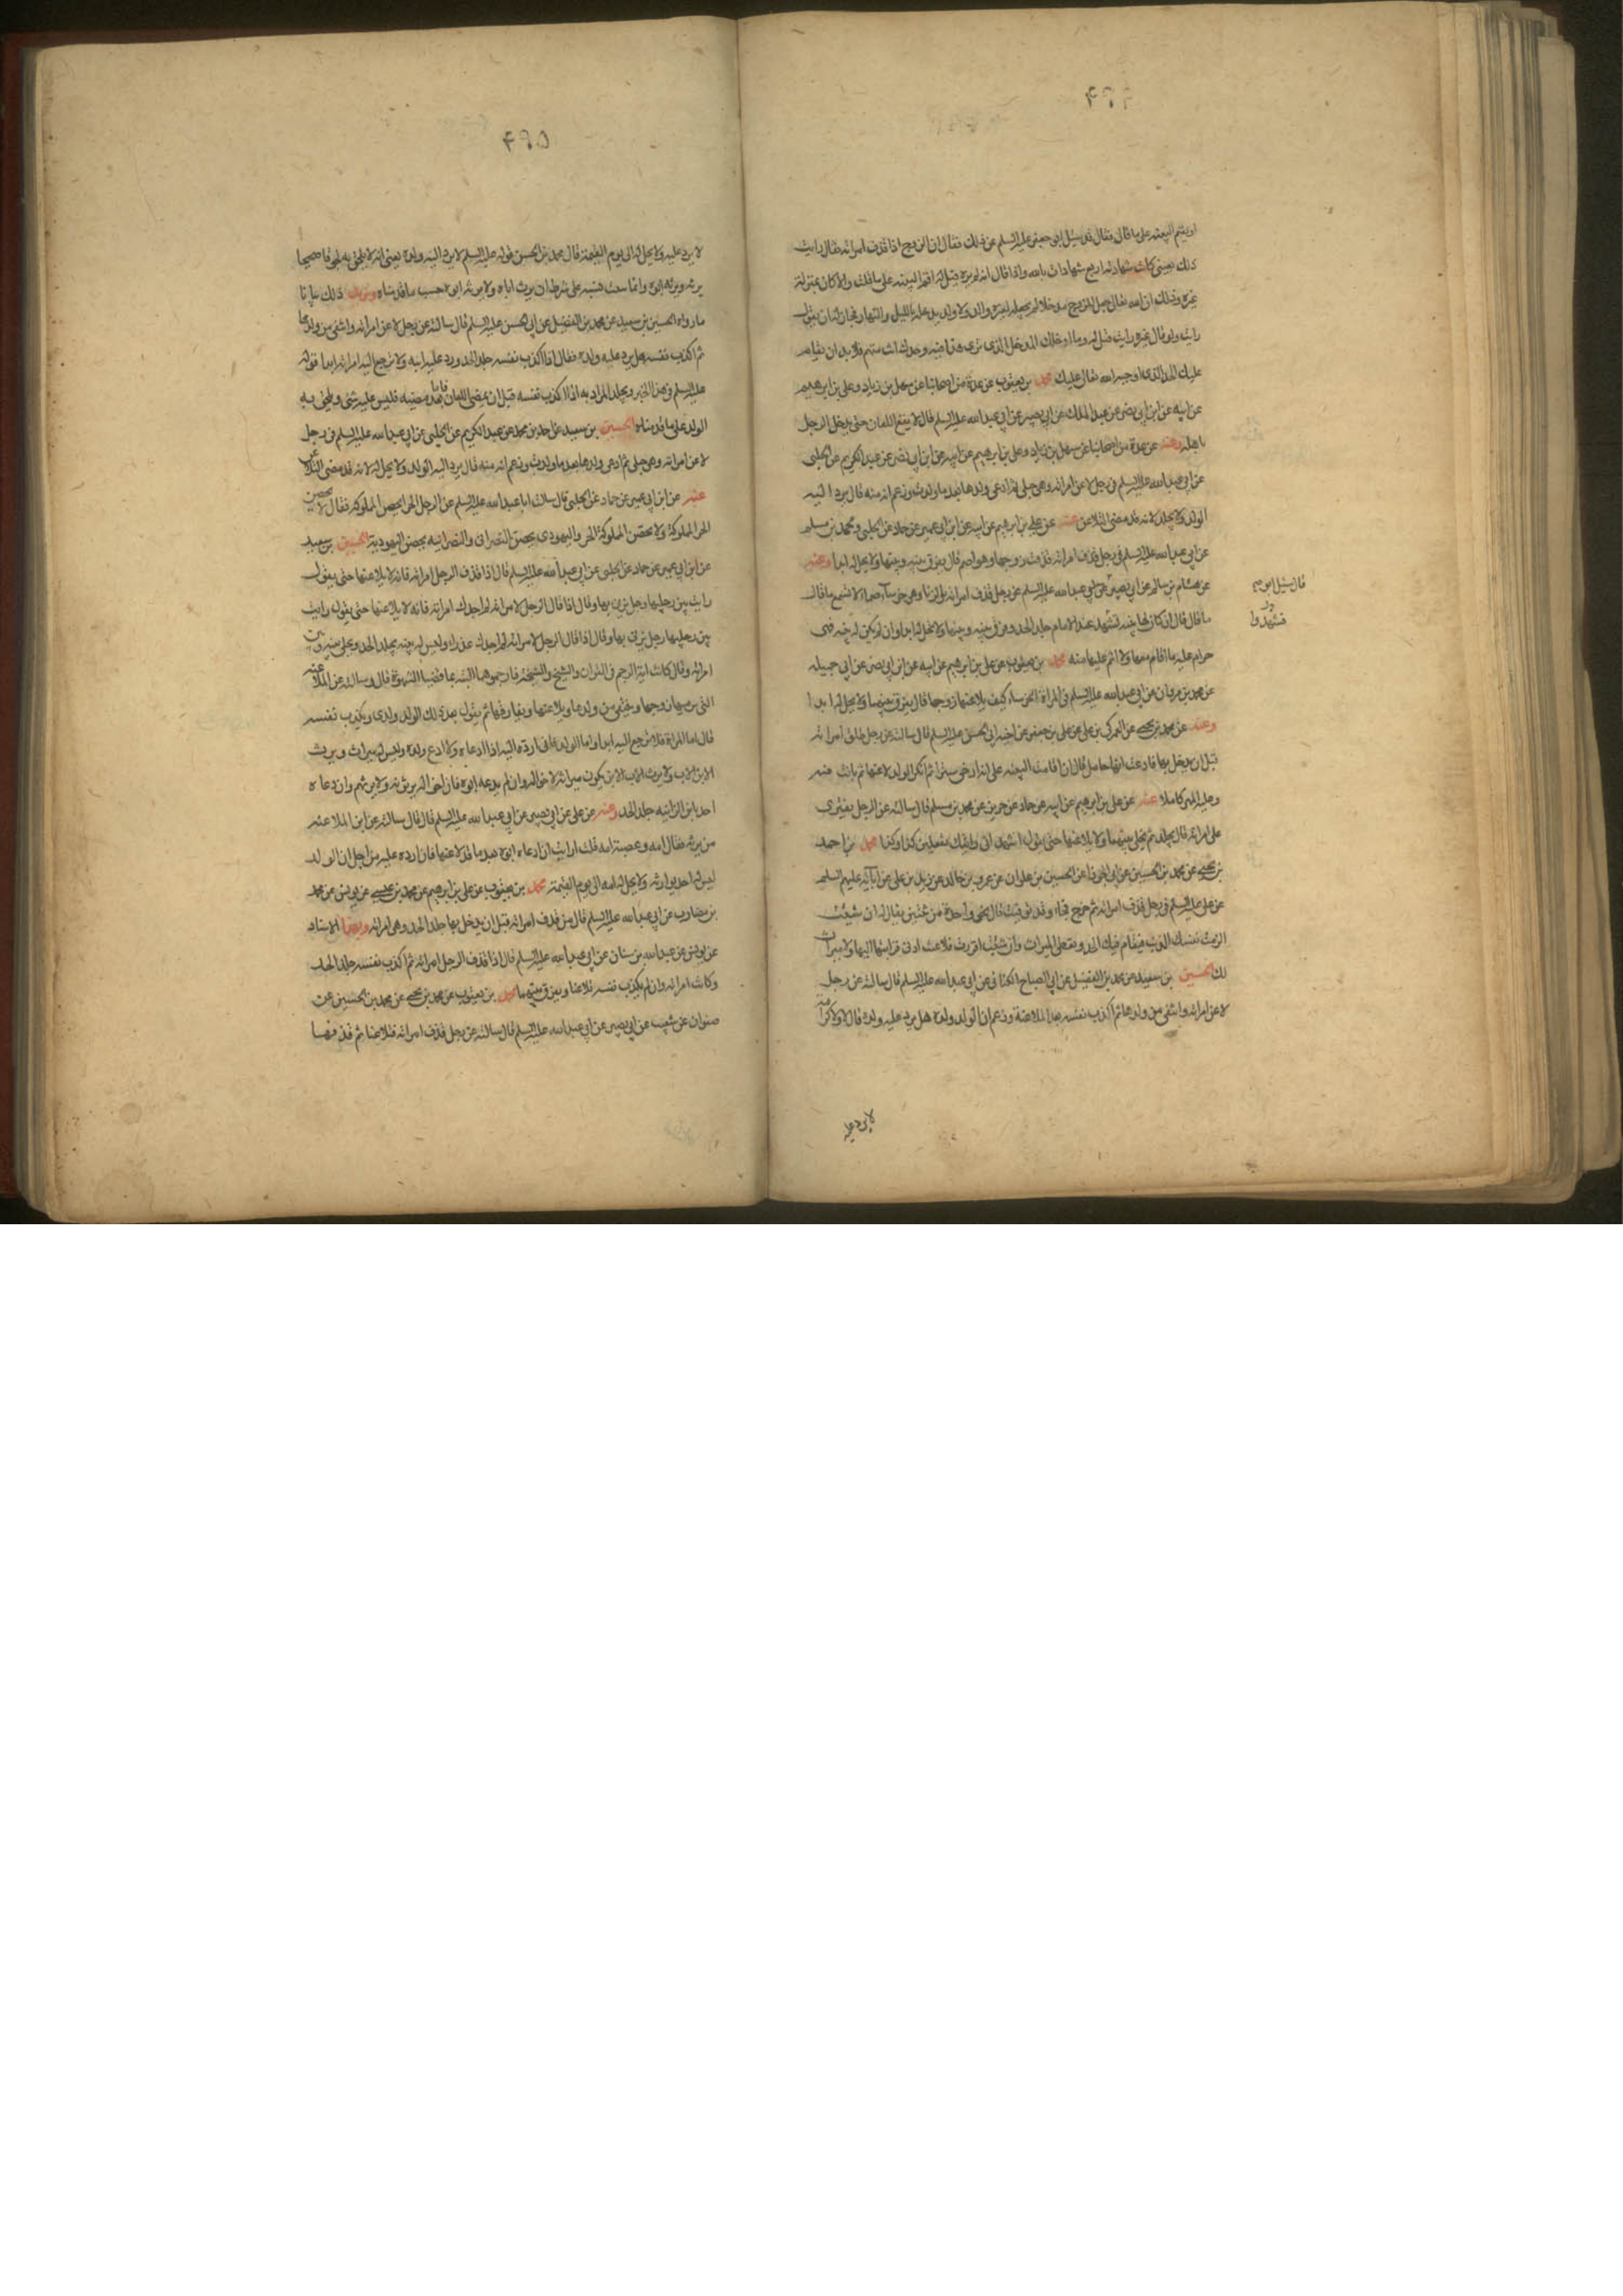 او يقيم البينه على ما قال فقال قد سئل ابو جعفر عليه السلم عن ذلك فقال ان الزوج اذا قذف امراته فقال رايت
ذلك بعيني كانت شهادته اربع شهادات بالله واذا قال انه لم يره قيل له اقم البينه على ما قلت والا كان بمنزلة
غيره وذلك ان الله تعالى جعل للزوج مدخلا لم يجعله لغيره والد ولا ولد يدخله بالليل والنهار فجاز له ان يقول
رايت ولو قال غيره رايت قيل له وما ادخلك المدخل الذي ترى هذا فيه وحدك انت متهم فلا بد ان يقام
عليك الحد الذي اوجبه الله تعالى عليك محمد بن يعقوب عن عدة من اصحابنا عن سهل بن زياد وعلي بن ابرهيم
عن ابيه عن ابن ابي نصر عن عبد الملك عن ابي بصير عن ابي عبد الله عليه السلم قال لا يقع اللعان حتى يدخل الرجل
باهله وعنه عن عدة من اصحابنا عن سهل بن زياد وعلي بن ابرهيم عن ابيه عن ابن ابي نصر عن عبد الكريم عن الحلبي
عن ابي عبد الله عليه السلم في رجل لاعن امراته وهي حبلى ثم ادعى ولدها بعد ما ولدت وزعم انه منه قال يرد اليه
الولد ولا يجلد لانه قد مضى التلاعن عنه عن علي بن ابرهيم عن ابيه عن ابن ابي عمير عن حماد عن الحلبي ومحمد بن مسلم
عن ابي عبد الله عليه السلم في رجل قذف امراته قذفت زوجها وهو اصم قال يفرق بينه وبينها ولا يحل له ابدا وعنه
عن هشام بن سالم عن ابي بصير عن ابي عبد الله عليه السلم عن رجل قذف امراته بالزنا وهي خرساء صماء لا تسمع ما قال
ما قال قال ان كان لها بينه تشهد عند الامام جلد الحد وفرق بينه وبينها ولا تحل له ابدا وان لم يكن له بينه فهي
حرام عليه ما اقام معها ولا اثم عليها منه محمد بن يعقوب عن علي بن ابرهيم عن ابيه عن ابن ابي نصر عن ابي جميله
عن محمد بن مروان عن ابي عبد الله عليه السلم في المراة الخرساء كيف يلاعنها زوجها قال يفرق بينهما ولا يحل له ابدا
وعنه عن محمد بن يحيى عن العمركي بن علي عن علي بن جعفر عن اخيه ابي الحسن عليه السلم قال سالته عن رجل طلق امراته
قبل ان يدخل بها فادعت انها حامل قال ان اقامت البينه على انه ارخى سترا ثم انكر الولد لاعنها ثم بانت منه
وعليه المهر كاملا عنه عن علي بن ابرهيم عن ابيه عن حماد عن حريز عن محمد بن مسلم قال سالته عن الرجل يفتري
على امراته قال يجلد ثم يخلى بينهما ولا يلاعنها حتى يقول اشهد اني رايتك تفعلين كذا وكذا محمد بن احمد
بن يحيى عن محمد بن الحسين عن ابي الجوزا عن الحسين بن علوان عن عمرو بن خالد عن زيد بن علي عن ابائه عليهم السلم
عن علي عليه السلم في رجل قذف امراته ثم خرج فجاء وقد توفيت قال يخير واحدة من ثنتين يقال له ان شئت
الزمت نفسك الذنب فيقام فيك الحد وتعطى الميراث وان شئت اقررت فلاعنت ادنى قرابتها اليها ولا ميراث
لك الحسين بن سعيد عن محمد بن الفضيل عن ابي الصباح الكناني عن ابي عبد الله عليه السلم قال سالته عن رجل
لاعن امراته وانتفى من ولدها ثم اكذب نفسه بعد الملاعنة وزعم ان الولد ولده هل يرد عليه ولده قال لا ولا كرامة
لا يرد عليه
فشهدوا
۴۹۵
لا يرد عليه ولا يحل له الى يوم القيمة قال محمد بن الحسن قوله عليه السلم لا يرد اليه ولده يعني انه لا يلحق به لحوقا صحيحا
يرثه ويرثه ابوه وانما يلحق به على شرط ان يرث اباه ولا يرثه ابوه حسب ما قدمناه ويزيد ذلك بيانا
ما رواه الحسين بن سعيد عن محمد بن الفضيل عن ابي الحسن عليه السلم قال سالته عن رجل لاعن امراته وانتفى من ولدها
ثم اكذب نفسه هل يرد عليه ولده فقال اذا اكذب نفسه جلد الحد ورد عليه ابنه ولا ترجع اليه امراته ابدا قوله
عليه السلم في هذا الخبر ويجلد المراد به اذا اكذب نفسه قبل ان يمضي اللعان فاما بعد مضيه فليس عليه شي ويلحق به
الولد على ما قدمناه الحسين بن سعيد عن احمد بن محمد عن عبد الكريم عن الحلبي عن ابي عبد الله عليه السلم في رجل
لاعن امراته وهي حبلى ثم ادعى ولدها بعد ما ولدت وزعم انه منه قال يرد اليه الولد ولا يحل له لانه قد مضى التلاعن
عنه عن ابن ابي عمير عن حماد عن الحلبي قال سالت ابا عبد الله عليه السلم عن الرجل الحر يحصن المملوكه فقال لا يحصن
الحر المملوكة ولا تحصن المملوكة الحر واليهودي يحصن النصرانيه والنصرانيه يحصن اليهودية الحسين بن سعيد
عن ابن ابي عمير عن حماد عن الحلبي عن ابي عبد الله عليه السلم قال اذا قذف الرجل امراته فانه لا يلاعنها حتى يقول
رايت بين رجليها رجل يزني بها وقال اذا قال الرجل لامراته لم اجدك امراته فانه لا يلاعنها حتى يقول رايت
بين رجليها رجل يزني بها وقال اذا قال الرجل لامراته لم اجدك عذراء وليس له بينه يجلد الحد ويخلى بينه وبين
امراته وقال كانت اية الرجم في القران والشيخ والشيخة فارجموهما البته بما قضيا الشهوة قال وسالته عن الملاعنه
التي يرميها زوجها وينتفي من ولدها ويلاعنها ويفارقها ثم يقول بعد ذلك الولد ولدي ويكذب نفسه
قال اما المراة فلا ترجع اليه ابدا واما الولد فاني ارده اليه اذا ادعاه ولا ادع ولده وليس له ميراث ويرث
الابن الاب ولا يرث الاب الابن يكون ميراثه لاخواله وان لم يدعه ابوه فان اخواله يرثونه ولا يرثهم وان دعاه
احد يا بن الزانيه جلد الحد وعنه عن علي عن ابي بصير عن ابي عبد الله عليه السلم قال قال سالته عن ابن الملاعنه
من يرثه فقال امه وعصبة امه قلت ارايت ان ادعاه ابوه بعد ما قد لاعنها قال ارده عليه من اجل ان الولد
ليس له احد يوارثه ولا يحل له امه الى يوم القيمة محمد بن يعقوب عن علي بن ابرهيم عن محمد بن عيسى عن يونس عن محمد
بن مضارب عن ابي عبد الله عليه السلم قال من قذف امراته قبل ان يدخل بها جلد الحد وهي امراته وبهذا الاسناد
عن يونس عن عبد الله بن سنان عن ابي عبد الله عليه السلم قال اذا قذف الرجل امراته ثم اكذب نفسه جلد الحد
وكانت امراته وان لم يكذب نفسه تلاعنا ويفرق بينهما محمد بن يعقوب عن محمد بن يحيى عن محمد بن الحسين عن
صفوان عن شعيب عن ابي بصير عن ابي عبد الله عليه السلم قال سالته عن رجل قذف امراته فتلاعنا ثم قذفها